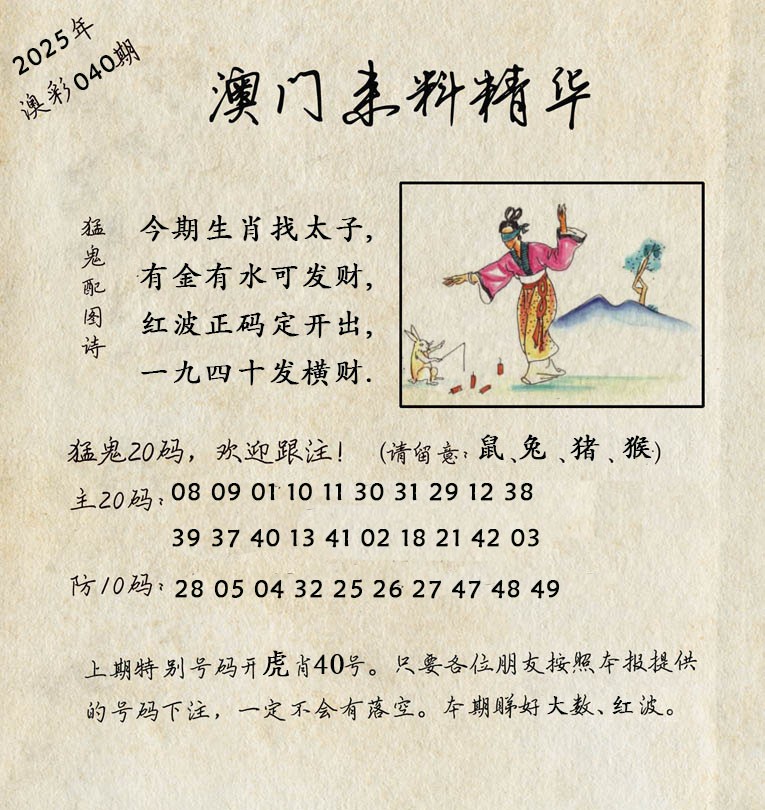 2025年
澳彩040期
澳门来料精华
猛鬼配图诗
今期生肖找太子,
有金有水可发财,
红波正码定开出,
一九四十发横财.
猛鬼20码，欢迎跟注！（请留意：鼠、兔、猪、猴）
主20码：08 09 01 10 11 30 31 29 12 38
39 37 40 13 41 02 18 21 42 03
防10码：28 05 04 32 25 26 27 47 48 49
上期特别号码开虎肖40号。只要各位朋友按照本报提供
的号码下注，一定不会有落空。本期睇好大数、红波。